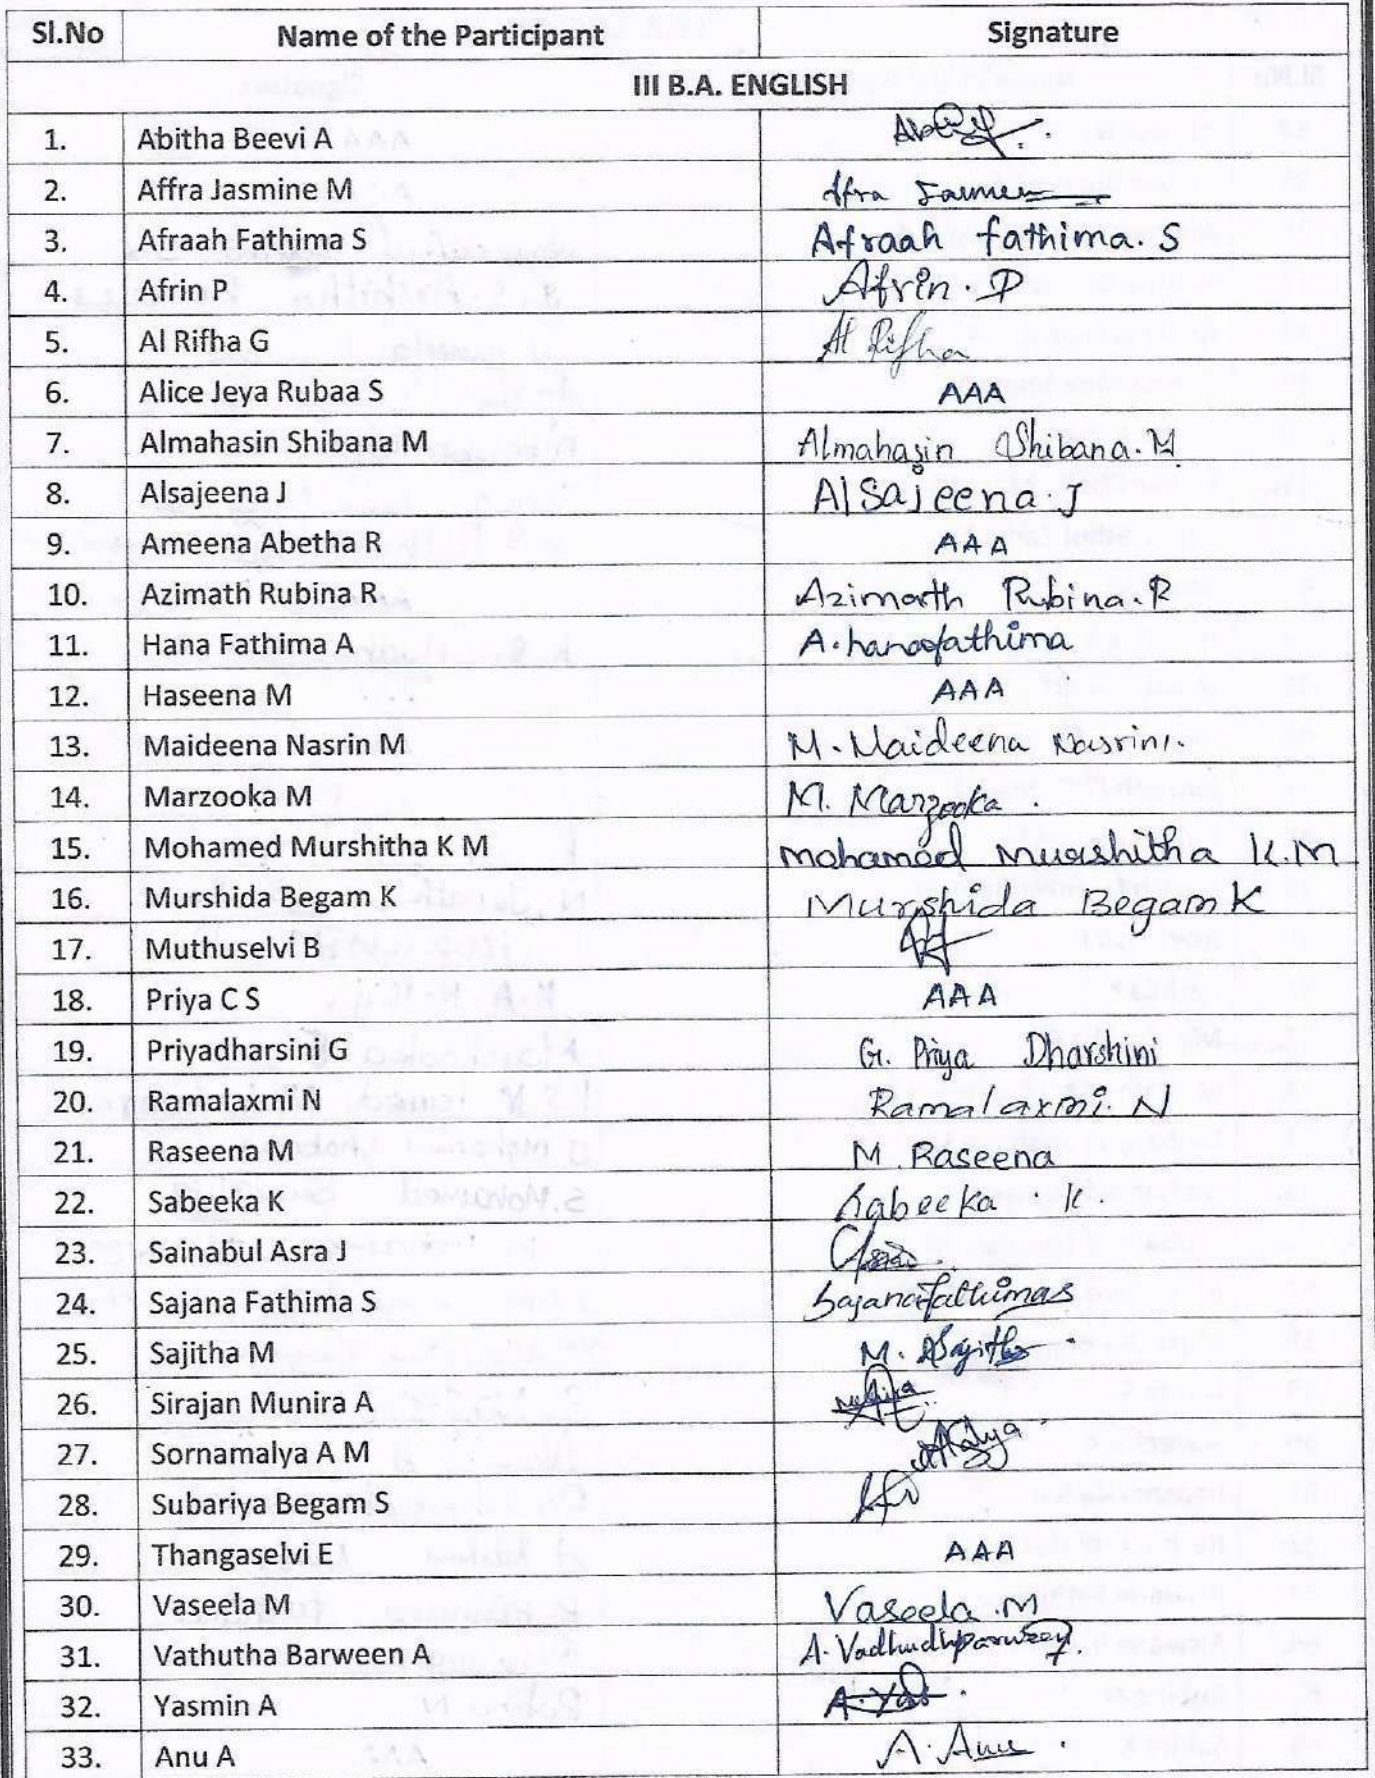 Sl.No Name of the Participant Signature
III B.A. ENGLISH
1. Abitha Beevi A
2. Affra Jasmine M Affra Jasmine
3. Afraah Fathima S Afraah fathima. S
4. Afrin P Afrin. P
5. Al Rifha G Al Rifha
6. Alice Jeya Rubaa S AAA
7. Almahasin Shibana M Almahasin Shibana. M
8. Alsajeena J Alsajeena. J
9. Ameena Abetha R AAA
10. Azimath Rubina R Azimath Rubina. R
11. Hana Fathima A A. hanafathima
12. Haseena M AAA
13. Maideena Nasrin M M. Maideena Nasrin.
14. Marzooka M M. Marzooka.
15. Mohamed Murshitha K M Mohamed Murshitha K.M
16. Murshida Begam K Murshida Begam K
17. Muthuselvi B
18. Priya C S AAA
19. Priyadharsini G G. Priya Dharshini
20. Ramalaxmi N Ramalaxmi. N
21. Raseena M M. Raseena
22. Sabeeka K Sabeeka K.
23. Sainabul Asra J
24. Sajana Fathima S Sajanafathima S
25. Sajitha M M. Sajitha
26. Sirajan Munira A
27. Sornamalya A M
28. Subariya Begam S
29. Thangaselvi E AAA
30. Vaseela M Vaseela .M
31. Vathutha Barween A A. Vadhudhparween.
32. Yasmin A A. Yas.
33. Anu A A. Anu.